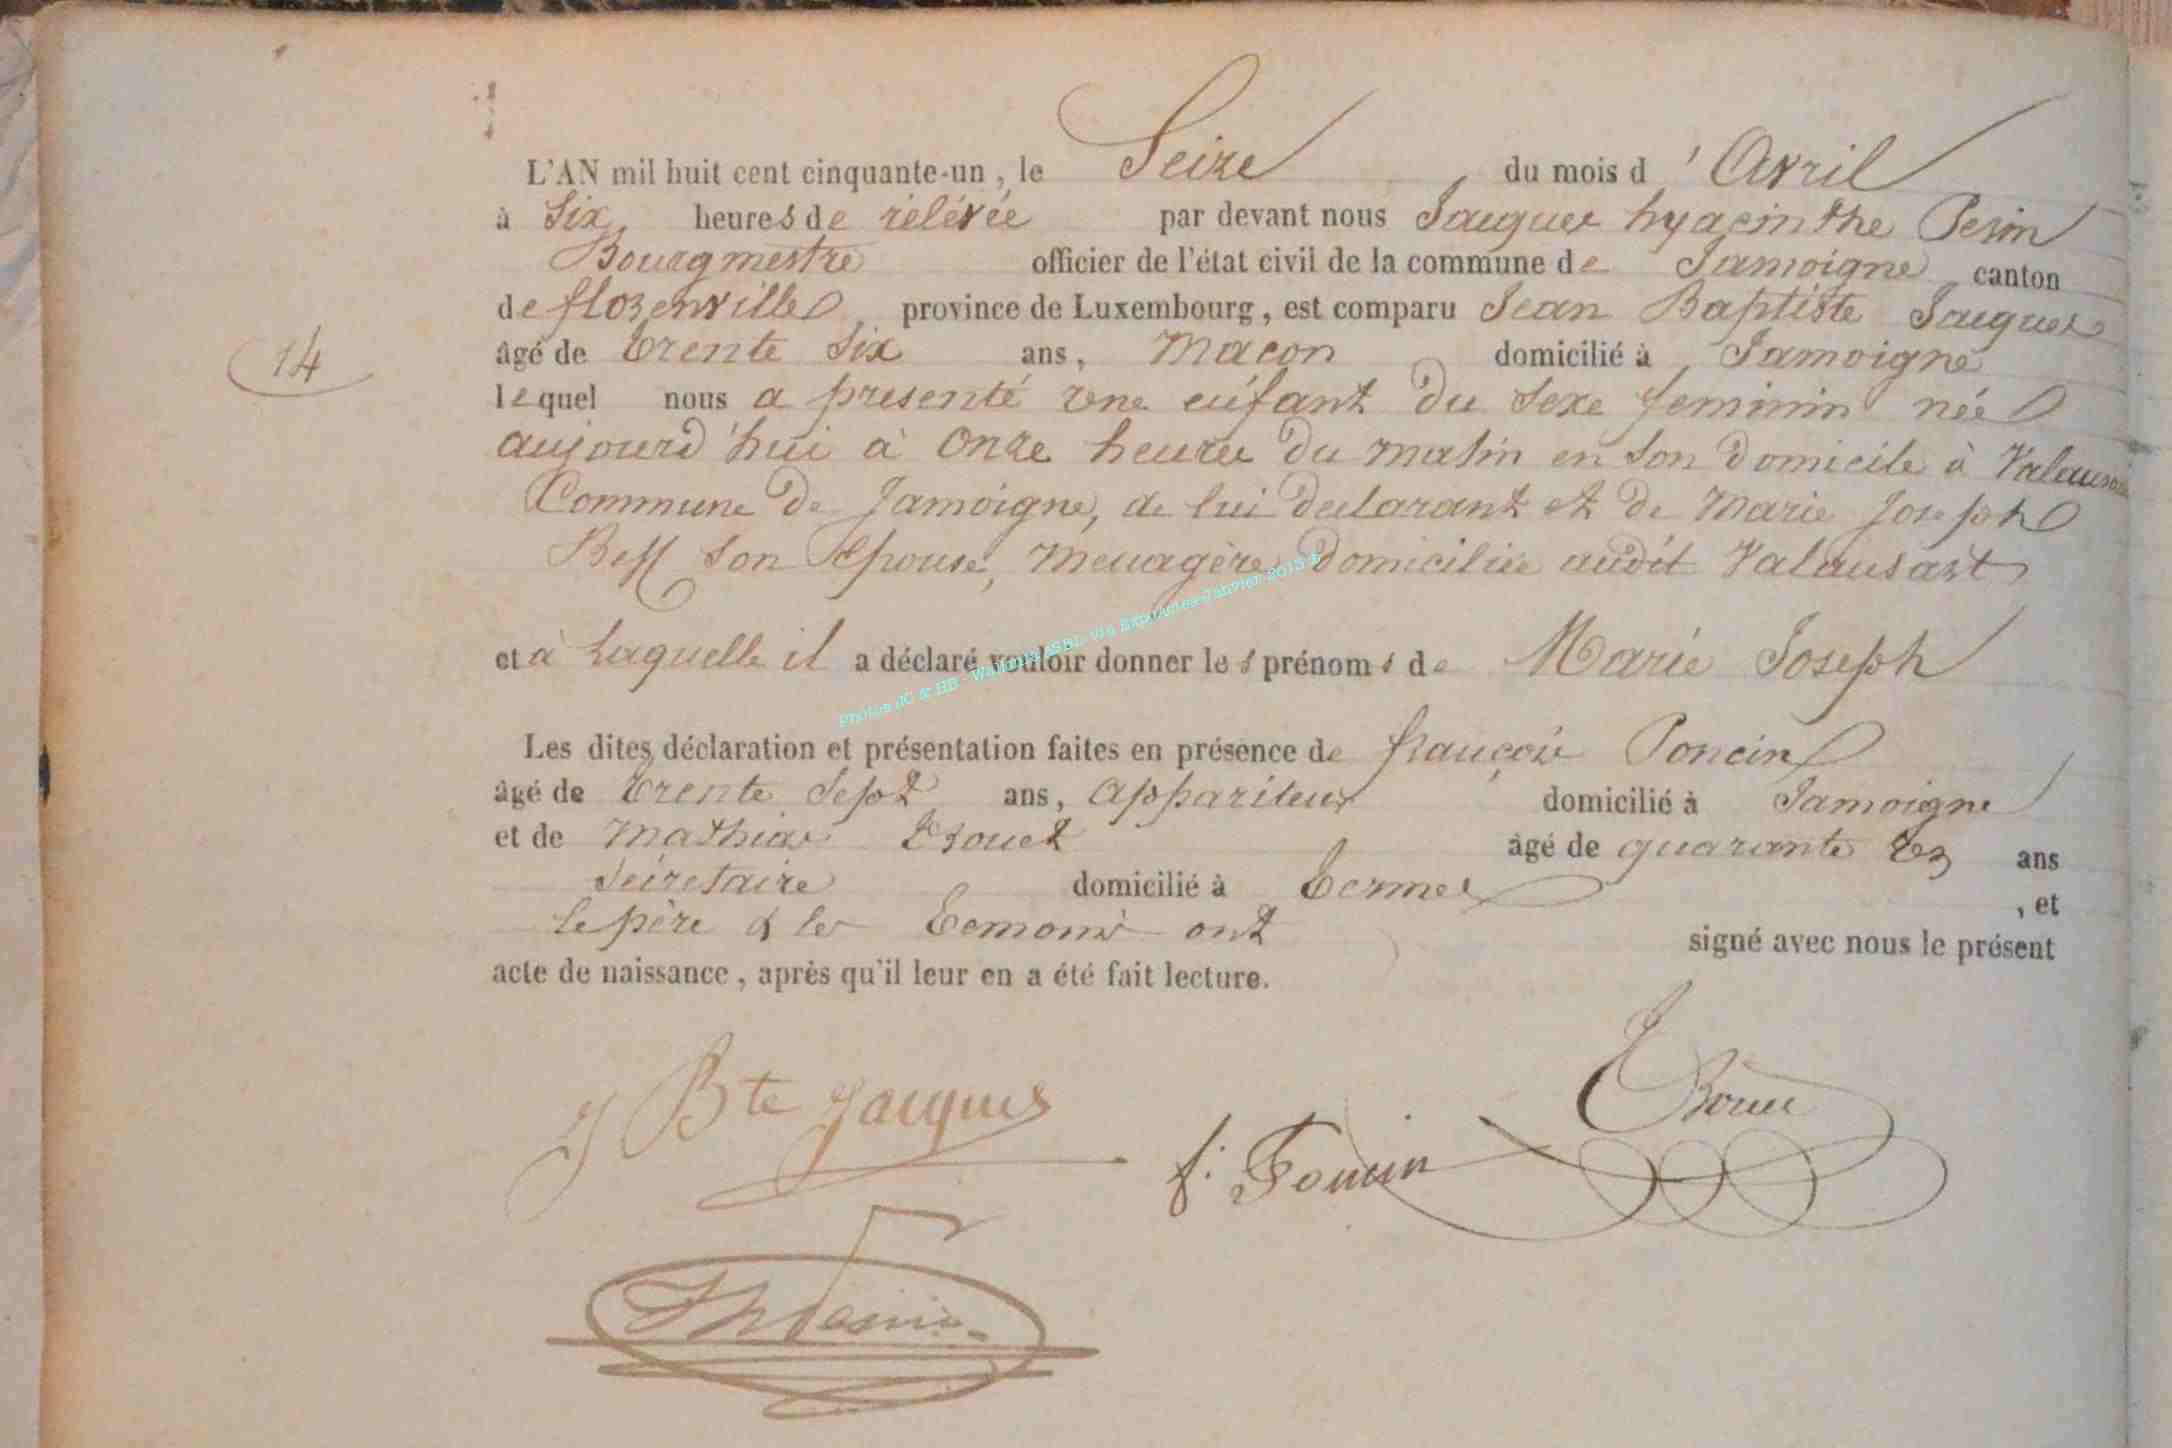 L'AN mil huit cent cinquante-un, le Seize du mois d'Avril
à Six heures de relévée par devant nous Jacques hyacinthe Pesin
Bourgmestre officier de l'état civil de la commune de Jamoigne canton
de florenville province de Luxembourg, est comparu Jean Baptiste Jacques
14
âgé de trente six ans, Macon domicilié à Jamoigne
lequel nous a presenté une enfant du sexe feminin née
aujourd'hui à onze heures du matin en son domicile à Valansart
Commune de Jamoigne, de lui declarant et de Marie Joseph
son Epouse, Menagère domiciliée audit Valansart
et à laquelle il a déclaré vouloir donner les prénoms de Marie Joseph
Photos JC & HB - Wallonia ASBL via Expoactes Janvier 2015
Les dites déclaration et présentation faites en présence de françois Poncin
âgé de trente Sept ans, appariteur domicilié à Jamoigne
et de Mathias Brouet âgé de quarante ans
Secretaire domicilié à Termes , et
le père & les temoins ont signé avec nous le présent
acte de naissance, après qu'il leur en a été fait lecture.
J Bte Jacques
f: Poncin